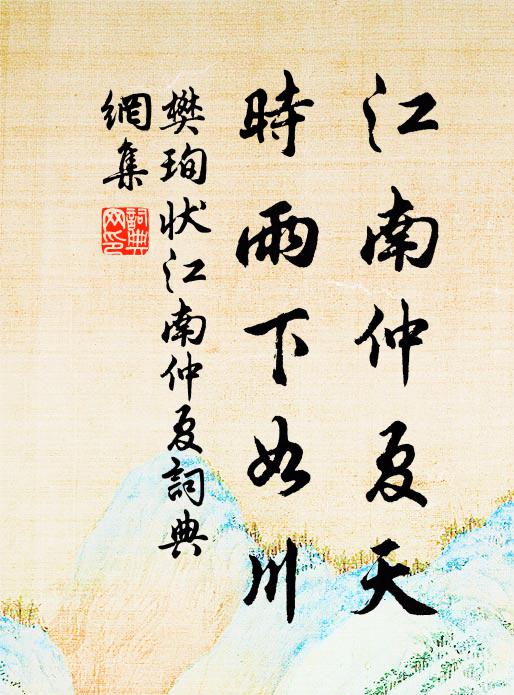 江南仲夏天
時雨下如川
樊珣狀江南仲夏詞典
網集
詞典
网印